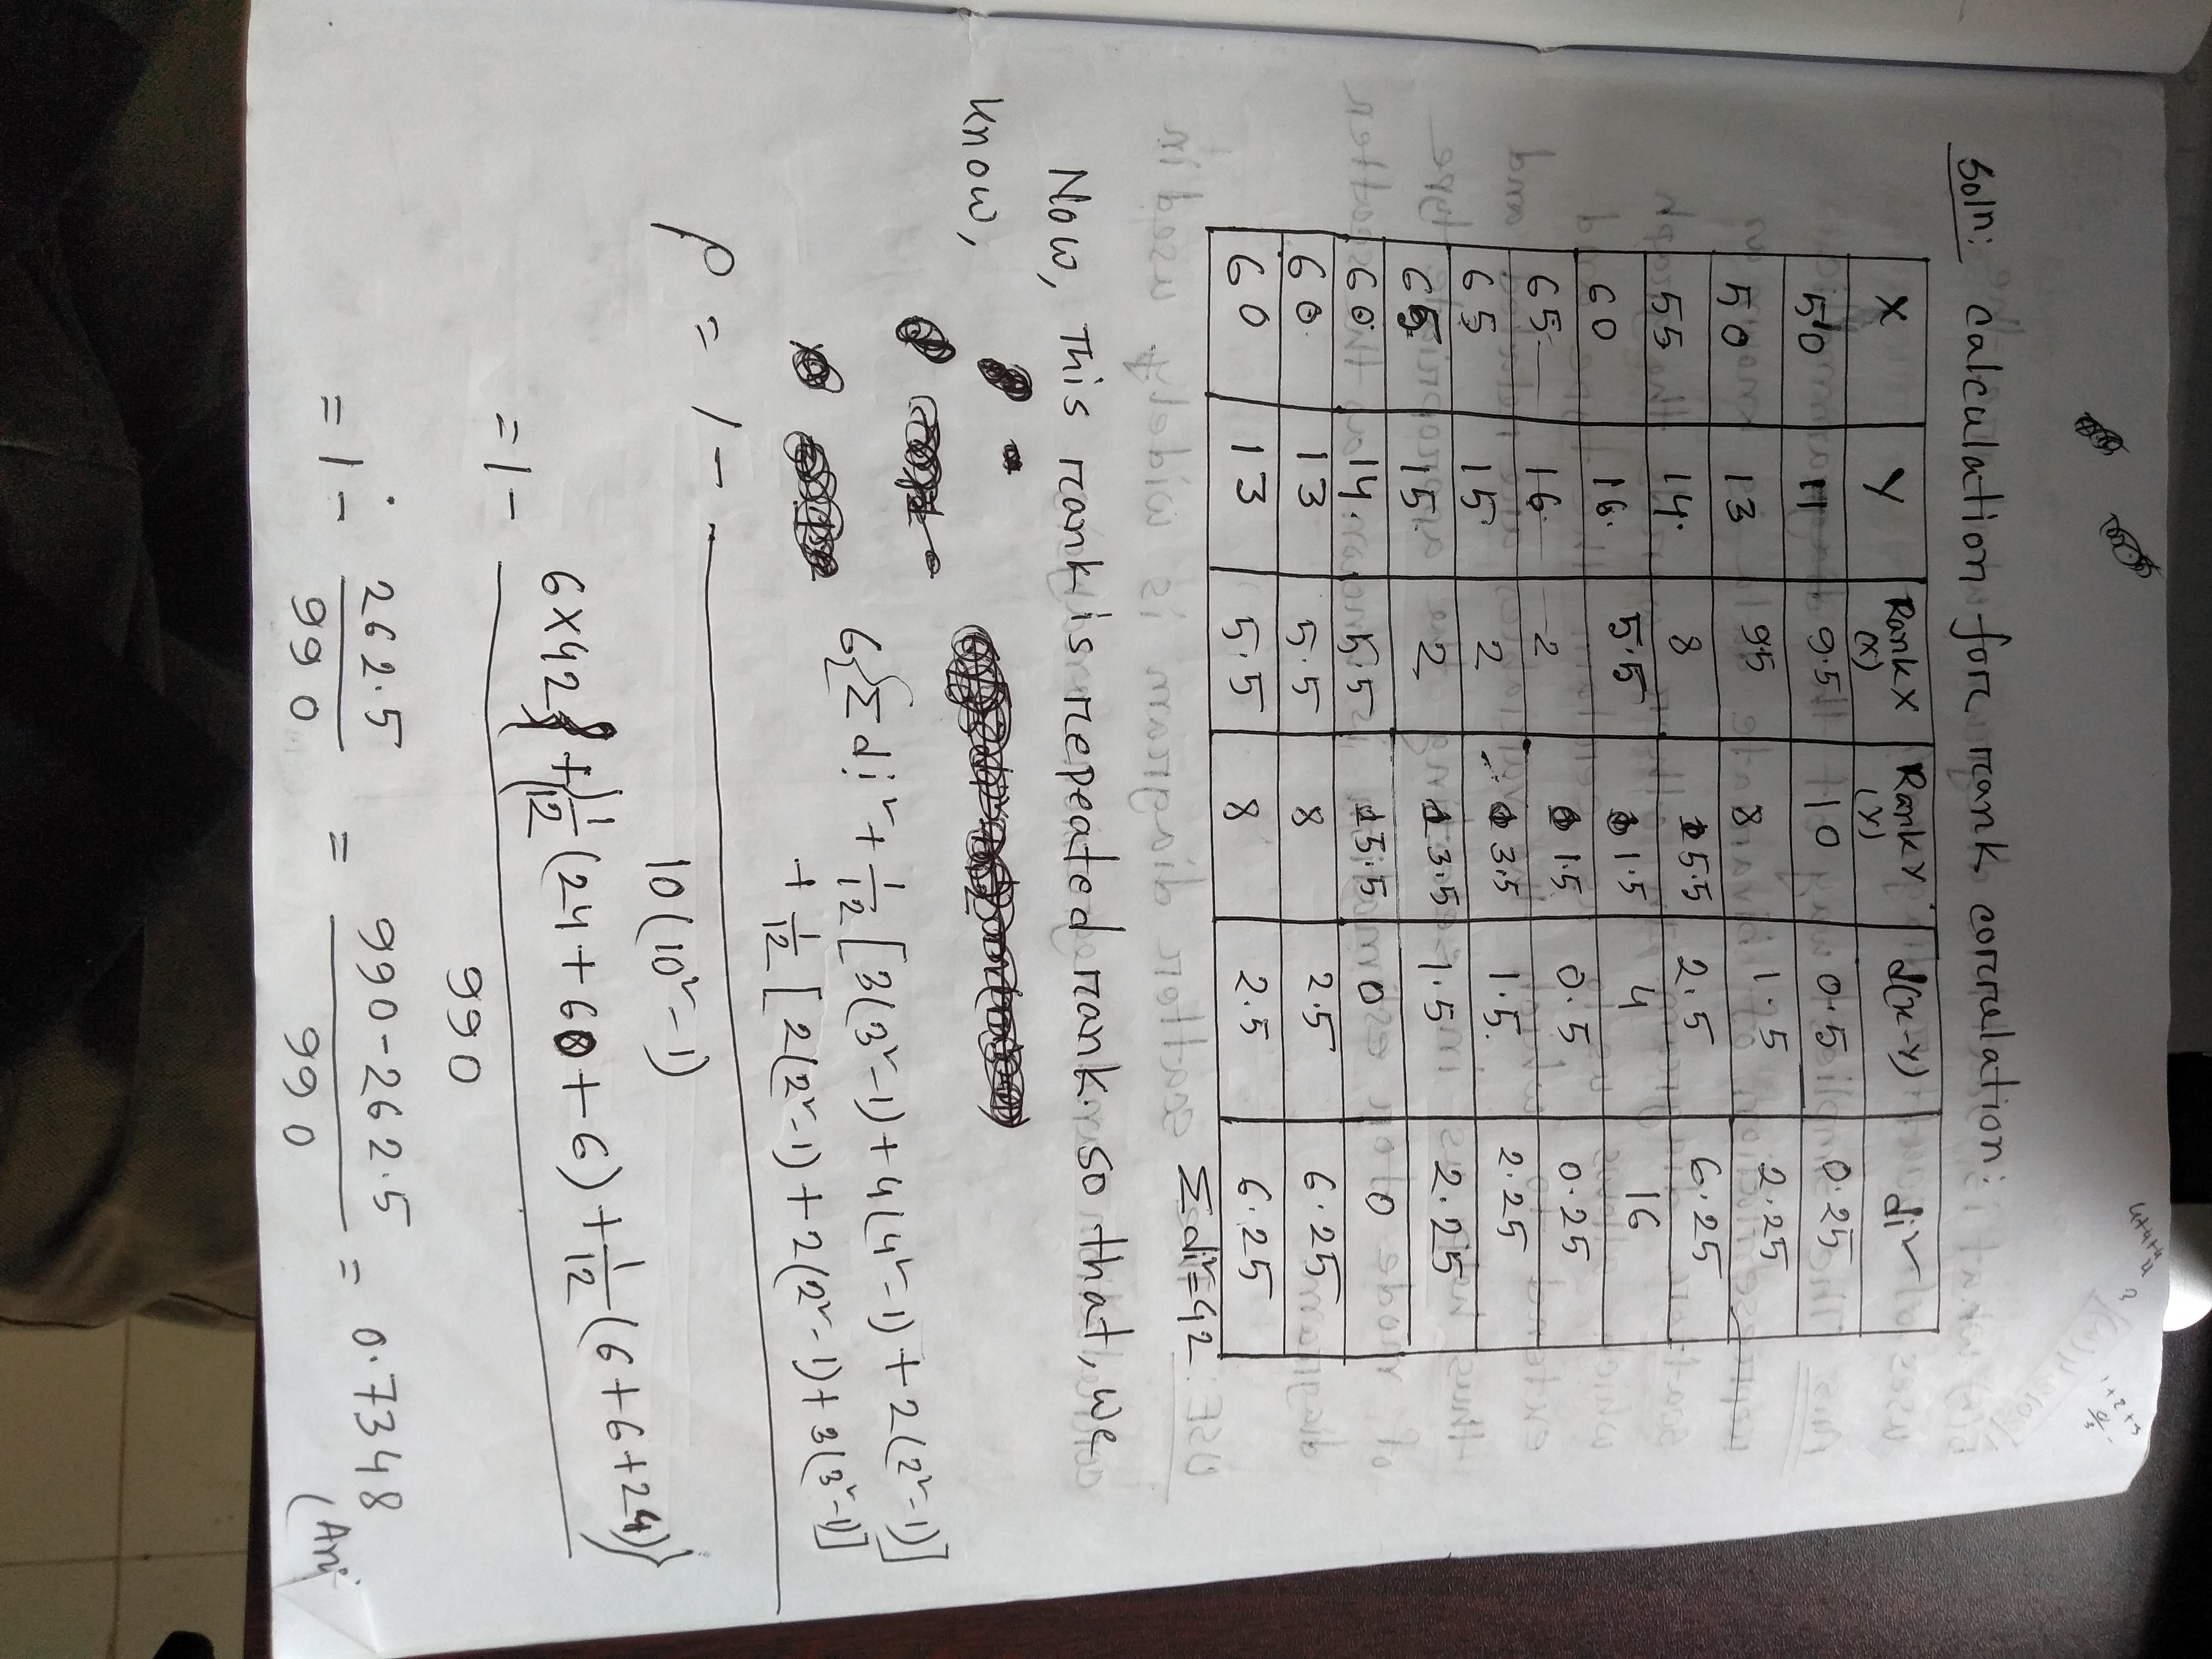 Soln: calculation for rank correlation:
X Y Rank X (X) Rank Y (Y) d(x-y) di²
50 11 9.5 10 0.5 0.25
50 13 9.5 8 1.5 2.25
55 14 8 5.5 2.5 6.25
60 16 5.5 1.5 4 16
65 16 2 1.5 0.5 0.25
65 15 2 3.5 1.5 2.25
65 15 2 3.5 1.5 2.25
60 14 5.5 5.5 0 0
60 13 5.5 8 2.5 6.25
60 13 5.5 8 2.5 6.25
Σdi²=42
Now, This rank is repeated rank. so that, we
know,
6{Σdi² + 1/12 [3(3²-1) + 4(4²-1) + 2(2²-1)]
+ 1/12 [2(2²-1) + 2(2²-1) + 3(3²-1)]
ρ = 1 -
10(10²-1)
6×42 + {1/12 (24+60+6) + 1/12 (6+6+24)}
= 1 -
990
= 1 - 262.5/990 = 990-262.5/990 = 0.7348
(Ans)